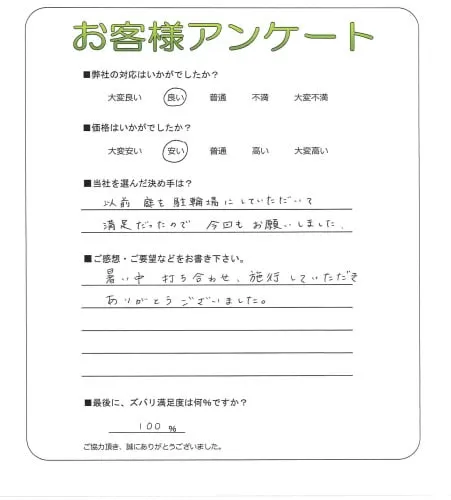 お客様アンケート
■弊社の対応はいかがでしたか？
大変良い 良い 普通 不満 大変不満
■価格はいかがでしたか？
大変安い 安い 普通 高い 大変高い
■当社を選んだ決め手は？
以前 庭を駐輪場にしていただいて
満足だったので 今回もお願いしました、
■ご感想・ご要望などをお書き下さい。
暑い中 打ち合わせ、施行していただき
ありがとうございました。
■最後に、ズバリ満足度は何％ですか？
100 %
ご協力頂き、誠にありがとうございました。